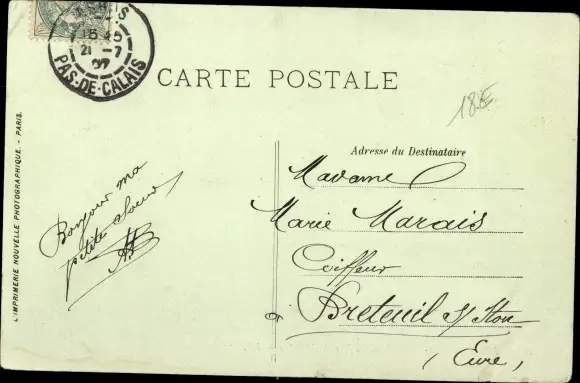 15 45
21 -7
07
PAS-DE-CALAIS
CARTE POSTALE
18E
Adresse du Destinataire
Madame
Marie Marais
Coiffeur
à Breteuil s/ Iton
(Eure)
Bonjour ma
petite soeur
L'IMPRIMERIE NOUVELLE PHOTOGRAPHIQUE. - PARIS.